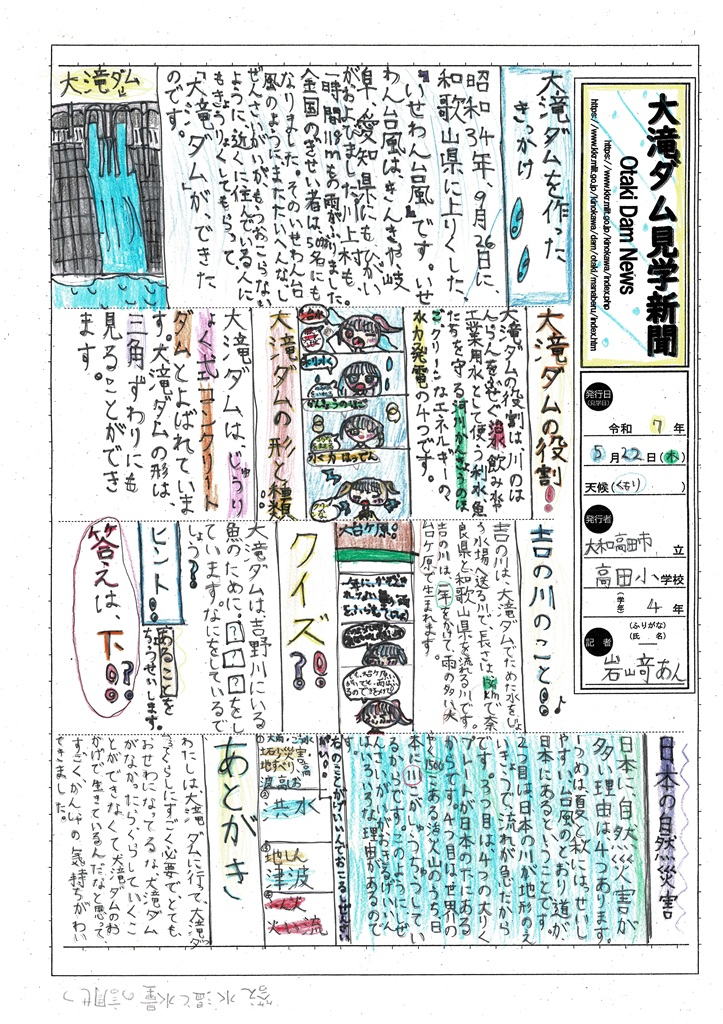 大滝ダム見学新聞
Otaki Dam News
https://www.kkr.mlit.go.jp/kinokawa/index.php
https://www.kkr.mlit.go.jp/kinokawa/dam/otaki/manaberu/index.htm
発行日
(見学日)
令和 7 年
5月22日(木)
天候(くもり)
発行者
大和高田市 立
高田小学校
(学年) 4 年
記者
(ふりがな)
(氏 名)
岩﨑あん
大滝ダムを作った
きっかけ
昭和34年、9月26日に、
和歌山県に上りくした、
「いせわん台風」です。いせ
わん台風は、きんきや岐
阜、愛知県にもひがい
がおよびました。川上村も、
なりました。そのいせわん台
風のようにまたたいへんなし
ぜんさいがいがもうおこらない
ように、近くに住んでいる人に
もきょうりょくしてもらって、
「大滝ダム」が、できた
のです。
大滝ダム
大滝ダムの役割!!
大滝ダムの役割は、川のは
んらんを防ぐ治水、飲み水や
工業用水として使う利水、魚
たちを守る河川かんきょうのほ
クリーンなエネルギーの、
水力発電の4つです。
大滝ダムの形と種類
大滝ダムは、じゅうり
ょく式コンクリート
ダムとよばれていま
す。大滝ダムの形は、
三角ずわりにも
見ることができ
ます。
吉の川のこと!!
吉の川は、大滝ダムでためた水をじょ
う水場へ送る川で、長さは
良県と和歌山県を流れる川です。
吉の川は、一年をかけて、雨の多い大
台ケ原で生まれます。
大台ケ原!
クイズ?!
大滝ダムは吉野川にいる
魚のために、???をし
ています。なにをしているで
しょう??
ヒント!!
あることを
ちょうせいします。
答えは、下!!??
日本の自然災害
日本に、自然災害が
多い理由は4つあります。
一つめは夏と秋にはっせいし
やすい台風のとおり道が、
日本にあるということです。
2つ目は日本の川が地形のえ
いきょうで流れが急だから
です。3つ目は、4つの大りく
プレートが日本の下にある
からです。4つ目は世界の
やく1500こある活火山のうち、日
本に111こがしゅうちゅうしてい
るからです。このようにしぜ
んさいがいがおきるげいいん
はいろいろな理由があるので
す。
洪水
地しん
津波
あとがき
わたしは、大滝ダムに行って、大滝ダ
おせわになってるな、大滝ダム
がなかったらくらしていくこ
とができなくて、大滝ダムのお
かげで生きているんだなと思って、
すごくかんしゃの気持ちがわい
てきました。
答え 水温と水量の調せつ